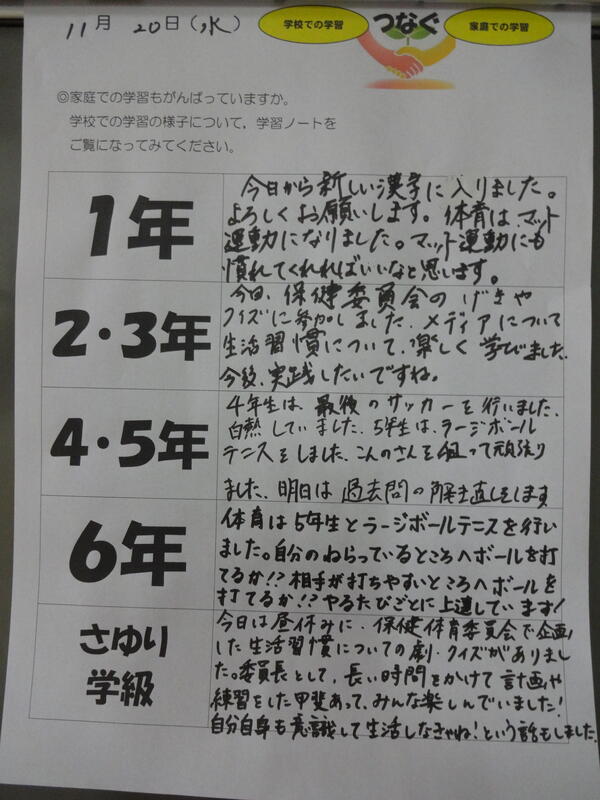 11月 20日(水)
学校での学習
つなぐ
家庭での学習
◎家庭での学習もがんばっていますか。
学校での学習の様子について，学習ノートを
ご覧になってみてください。
1年
今日から新しい漢字に入りました。
よろしくお願いします。体育は、マット
運動になりました。マット運動にも
慣れてくれればいいなと思います。
2・3年
今日、保健委員会のげきや
クイズに参加しました。メディアについて
生活習慣について、楽しく学びました。
今後、実践したいですね。
4・5年
4年生は、最後のサッカーを行いました。
白熱していました。5年生は、ラージボール
テニスをしました。こんのさんを狙って頑張り
ました。明日は過去問の解き直しをします
6年
体育は5年生とラージボールテニスを行い
ました。自分のねらっているところへボールを打
てるか!?相手が打ちやすいところへボールを
打てるか!?やるたびごとに上達しています!
さゆり
学級
今日は昼休みに、保健体育委員会で企画
した生活習慣についての劇・クイズがありまし
た。委員長として、長い時間をかけて計画や
練習をした甲斐あって、みんな楽しんでいました!
自分自身も意識して生活しなきゃね!という話もしました。